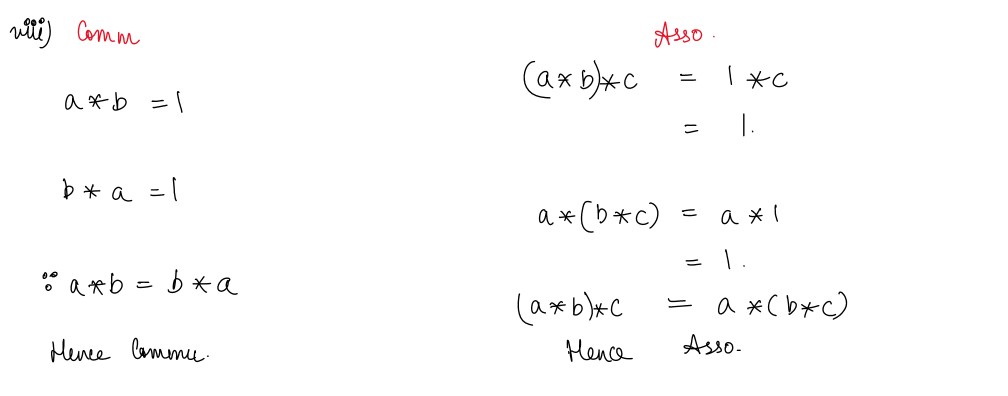 viii) Comm
a * b = 1
b * a = 1
∵ a * b = b * a
Hence Commu.
Asso.
(a * b) * c = 1 * c
= 1.
a * (b * c) = a * 1
= 1.
(a * b) * c = a * (b * c)
Hence Asso.